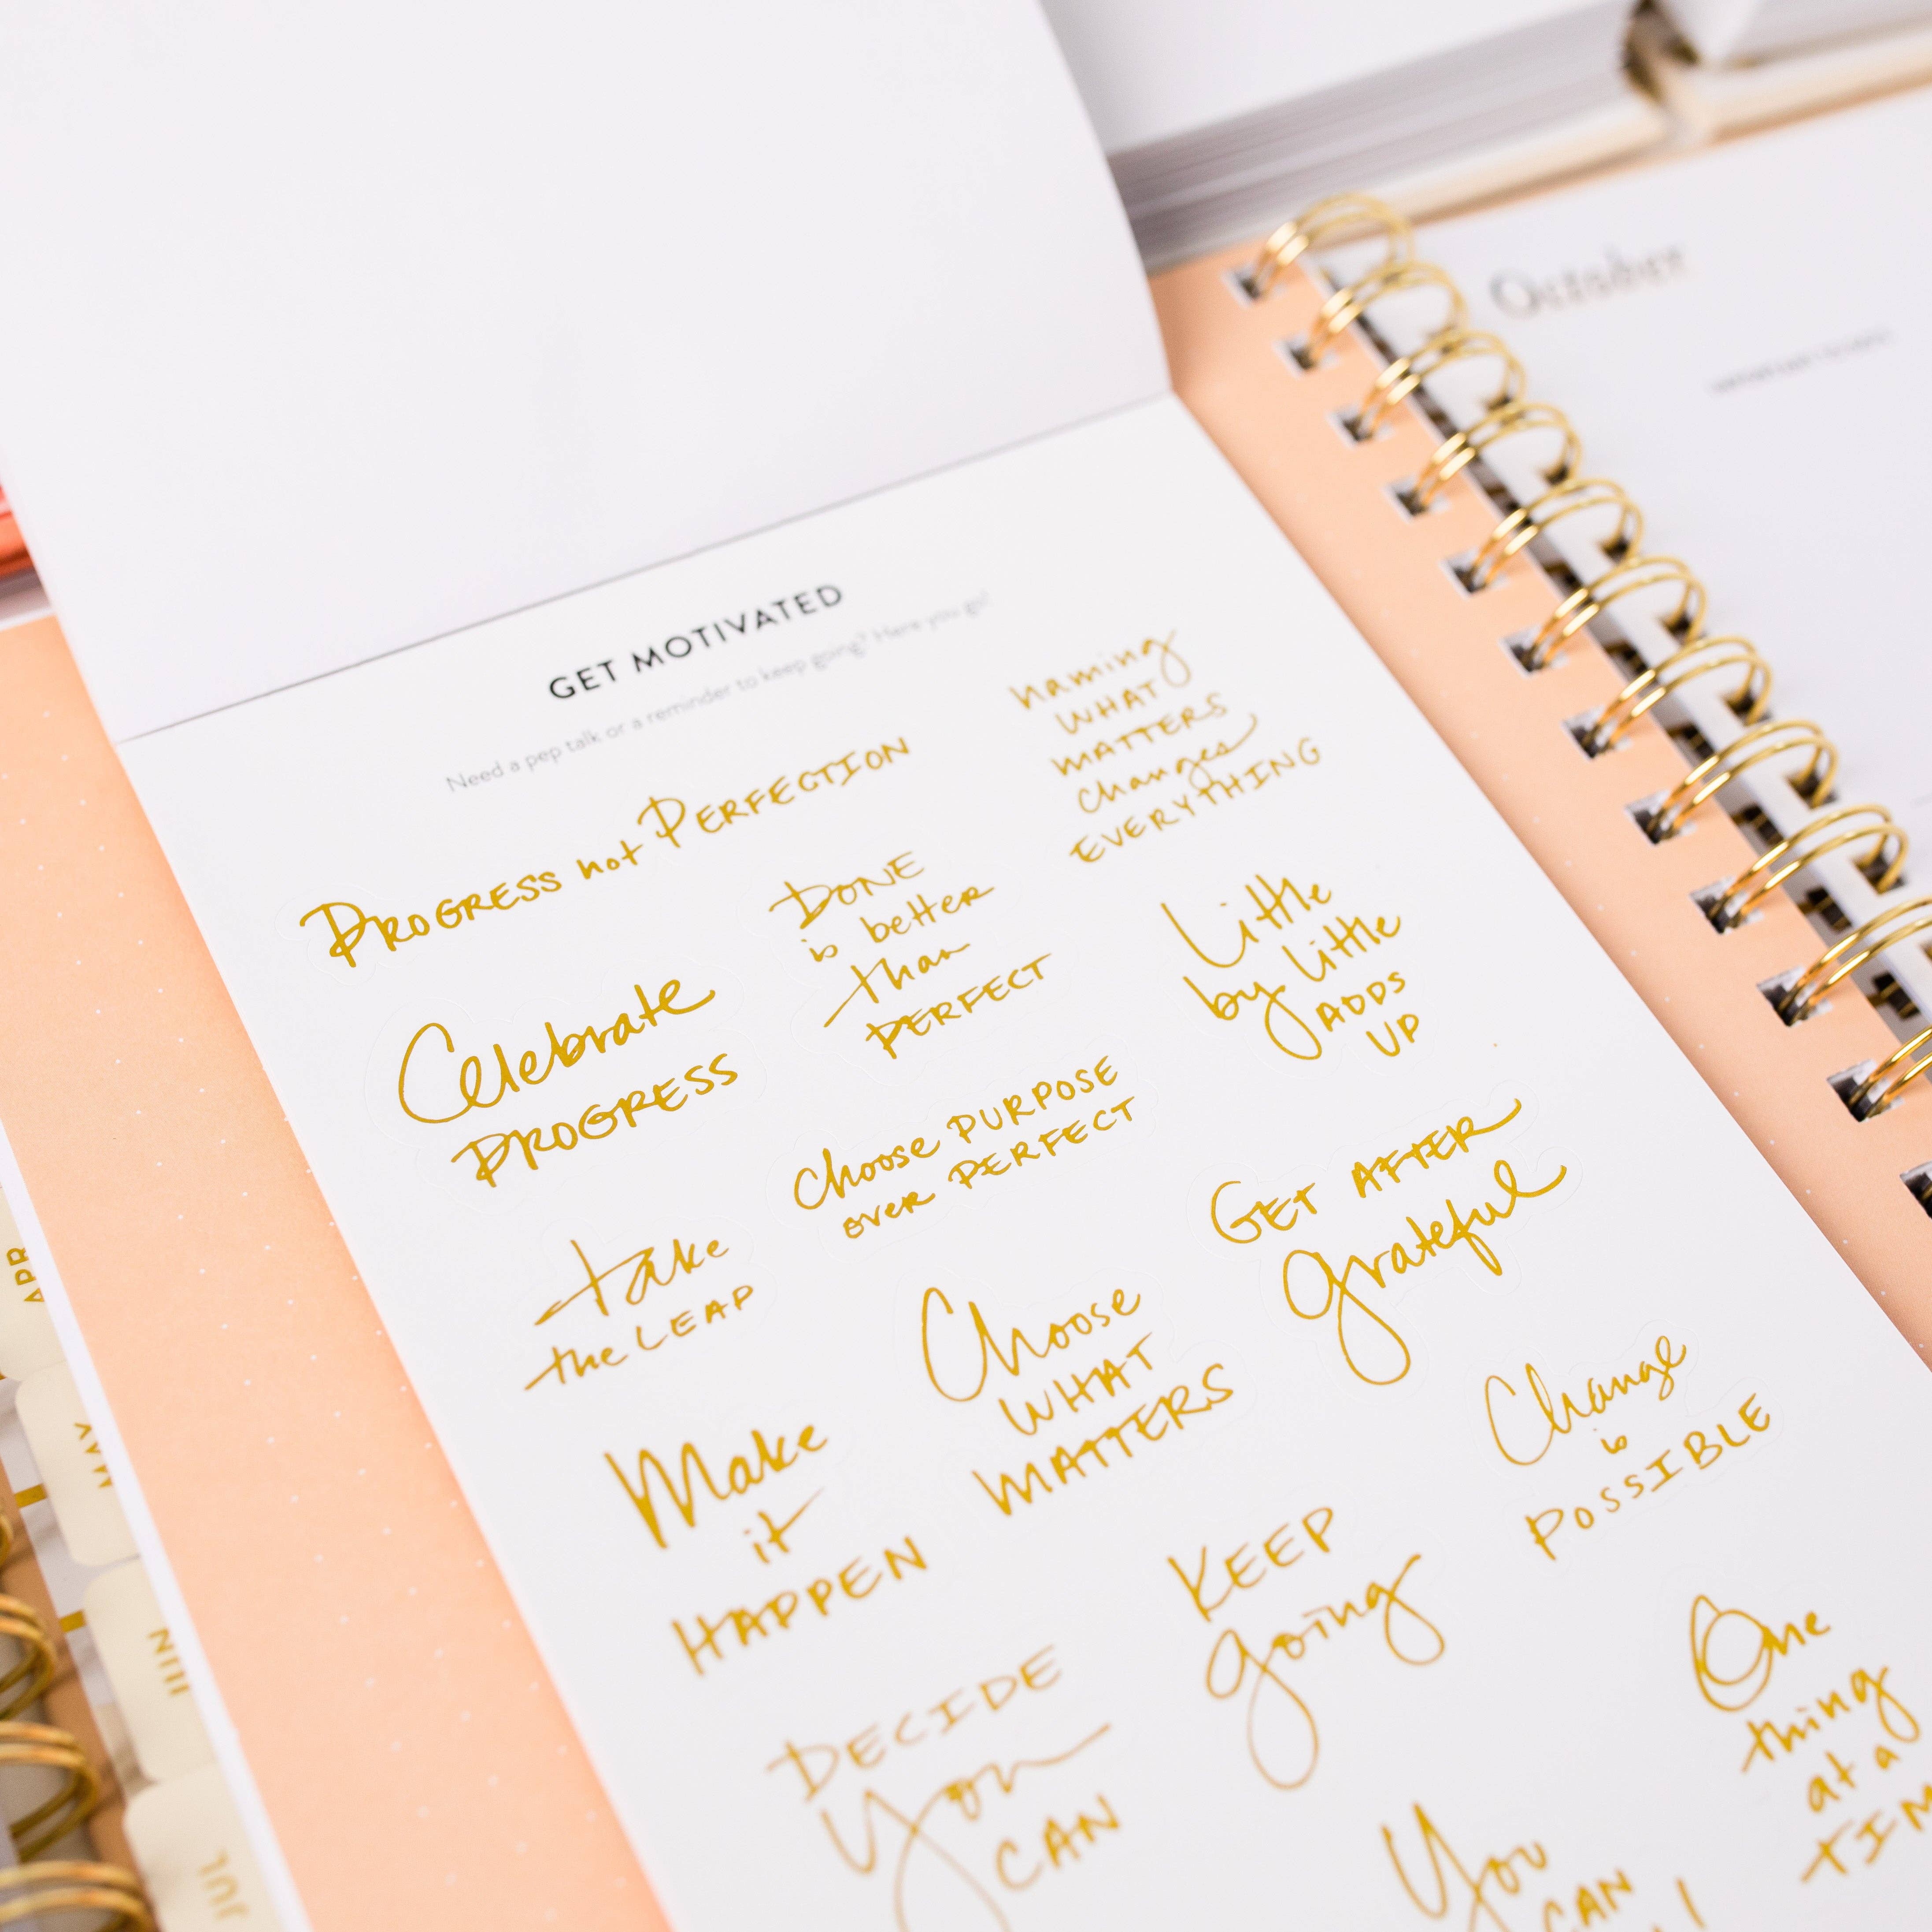 October
GET MOTIVATED
Need a pep talk or a reminder to keep going? Here you go!
PROGRESS not PERFECTION
naming
WHAT
MATTERS
changes
EVERYTHING
DONE
is better
than
PERFECT
Little
by little
ADDS
UP
Celebrate
PROGRESS
Choose PURPOSE
over PERFECT
GET AFTER
grateful
take
the LEAP
Choose
WHAT
MATTERS
Change
is
POSSIBLE
Make
it
HAPPEN
KEEP
going
One
thing
at a
DECIDE
You
CAN
You
CAN
APR
MAY
JUN
JUL